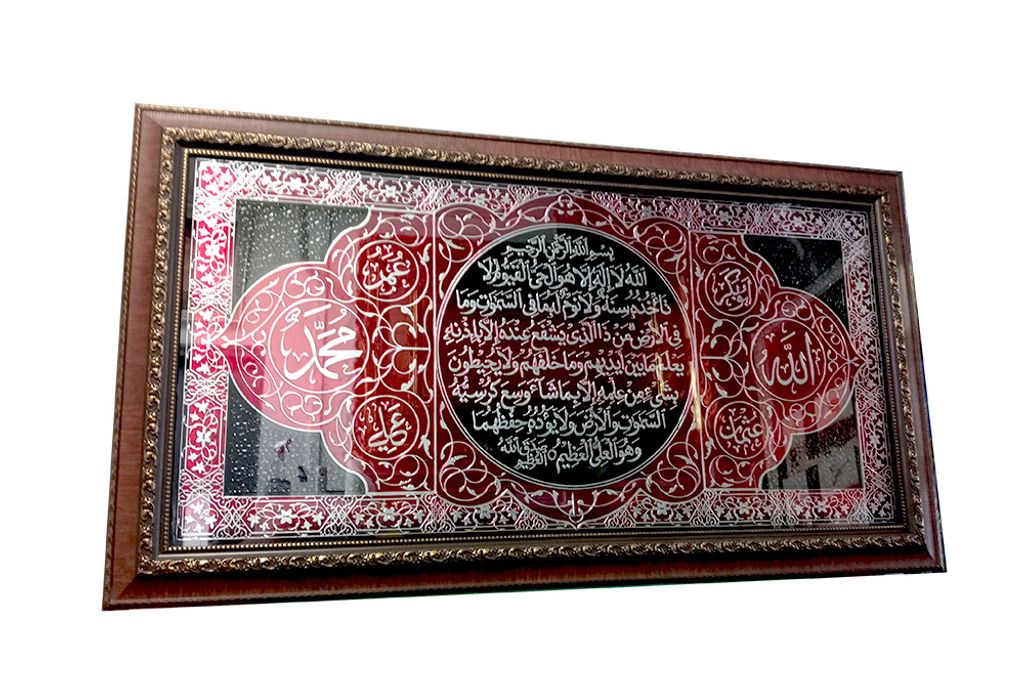 بسم الله الرحمن الرحيم
الله لا إله إلا هو الحي القيوم لا
تأخذه سنة ولا نوم له ما في السموت وما
في الأرض من ذا الذي يشفع عنده إلا بإذنه
يعلم ما بين أيديهم وما خلفهم ولا يحيطون
بشيء من علمه إلا بما شاء وسع كرسيه
السموت والأرض ولا يؤده حفظهما
وهو العلي العظيم صدق الله العظيم
ابوبكر
عمر
الله
محمد
عثمن
علي